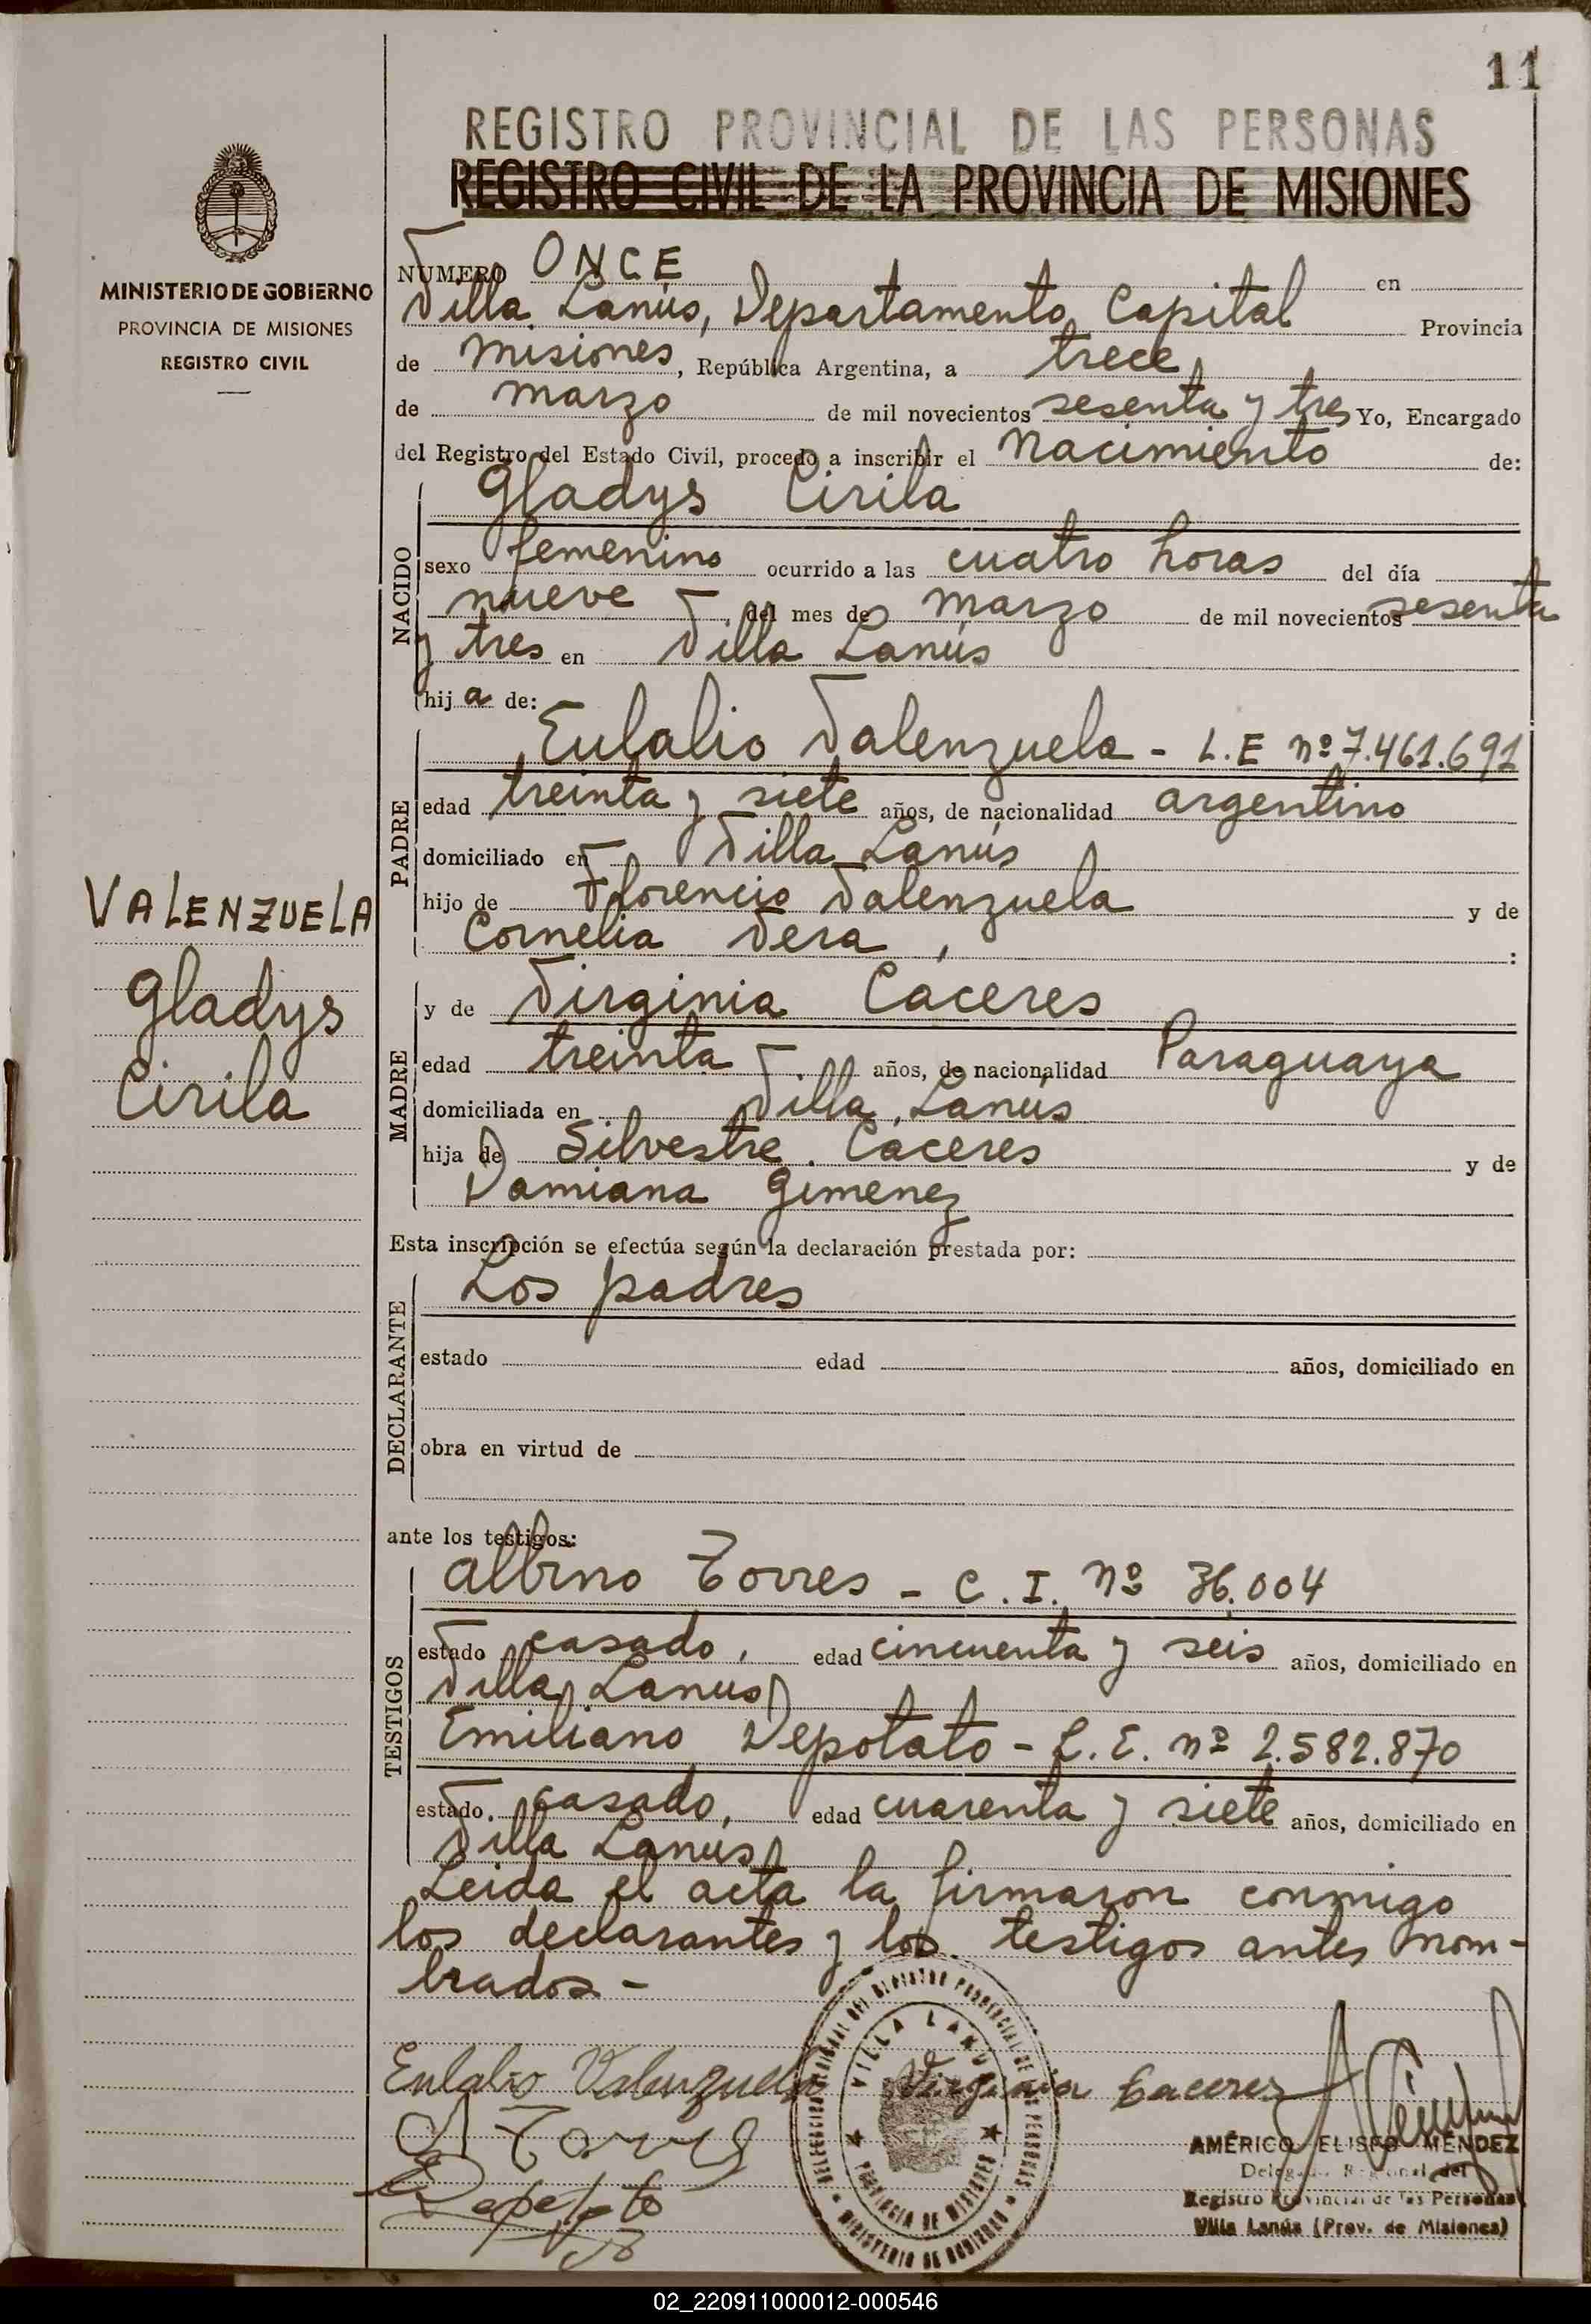 11
REGISTRO PROVINCIAL DE LAS PERSONAS
REGISTRO CIVIL DE LA PROVINCIA DE MISIONES
MINISTERIO DE GOBIERNO
PROVINCIA DE MISIONES
REGISTRO CIVIL
NUMERO ONCE en
Villa Lanús, Departamento Capital Provincia
de Misiones, República Argentina, a trece
de marzo de mil novecientos sesenta y tres Yo, Encargado
del Registro del Estado Civil, procedo a inscribir el Nacimiento de:
NACIDO
Gladys Cirila
sexo femenino ocurrido a las cuatro horas del día
nueve del mes de marzo de mil novecientos sesenta
y tres en Villa Lanús
hija de:
PADRE
Eulalio Valenzuela - L.E nº 7.461.691
edad treinta y siete años, de nacionalidad argentino
domiciliado en Villa Lanús
hijo de Florencio Valenzuela y de
Cornelia Vera, :
VALENZUELA
Gladys
Cirila
MADRE
y de Virginia Caceres
edad treinta años, de nacionalidad Paraguaya
domiciliada en Villa Lanús
hija de Silvestre Caceres y de
Damiana Gimenez
Esta inscripción se efectúa según la declaración prestada por:
DECLARANTE
Los padres
estado edad años, domiciliado en
obra en virtud de
ante los testigos:
TESTIGOS
Albino Torres - C.I. Nº 36.004
estado casado, edad cincuenta y seis años, domiciliado en
Villa Lanus
Emiliano Depotato - L.E. nº 2.582.870
estado casado, edad cuarenta y siete años, domiciliado en
Villa Lanus
Leida el acta la firmaron conmigo
los declarantes y los testigos antes nom-
brados -
Eulalio Valenzuela Virginia Caceres
A Torres
VILLA LANUS
PROVINCIA DE MISIONES
MINISTERIO DE GOBIERNO
AMÉRICO ELISEO MÉNDEZ
Delegado Regional del
Registro Provincial de las Personas
Villa Lanús (Prov. de Misiones)
02_220911000012-000546